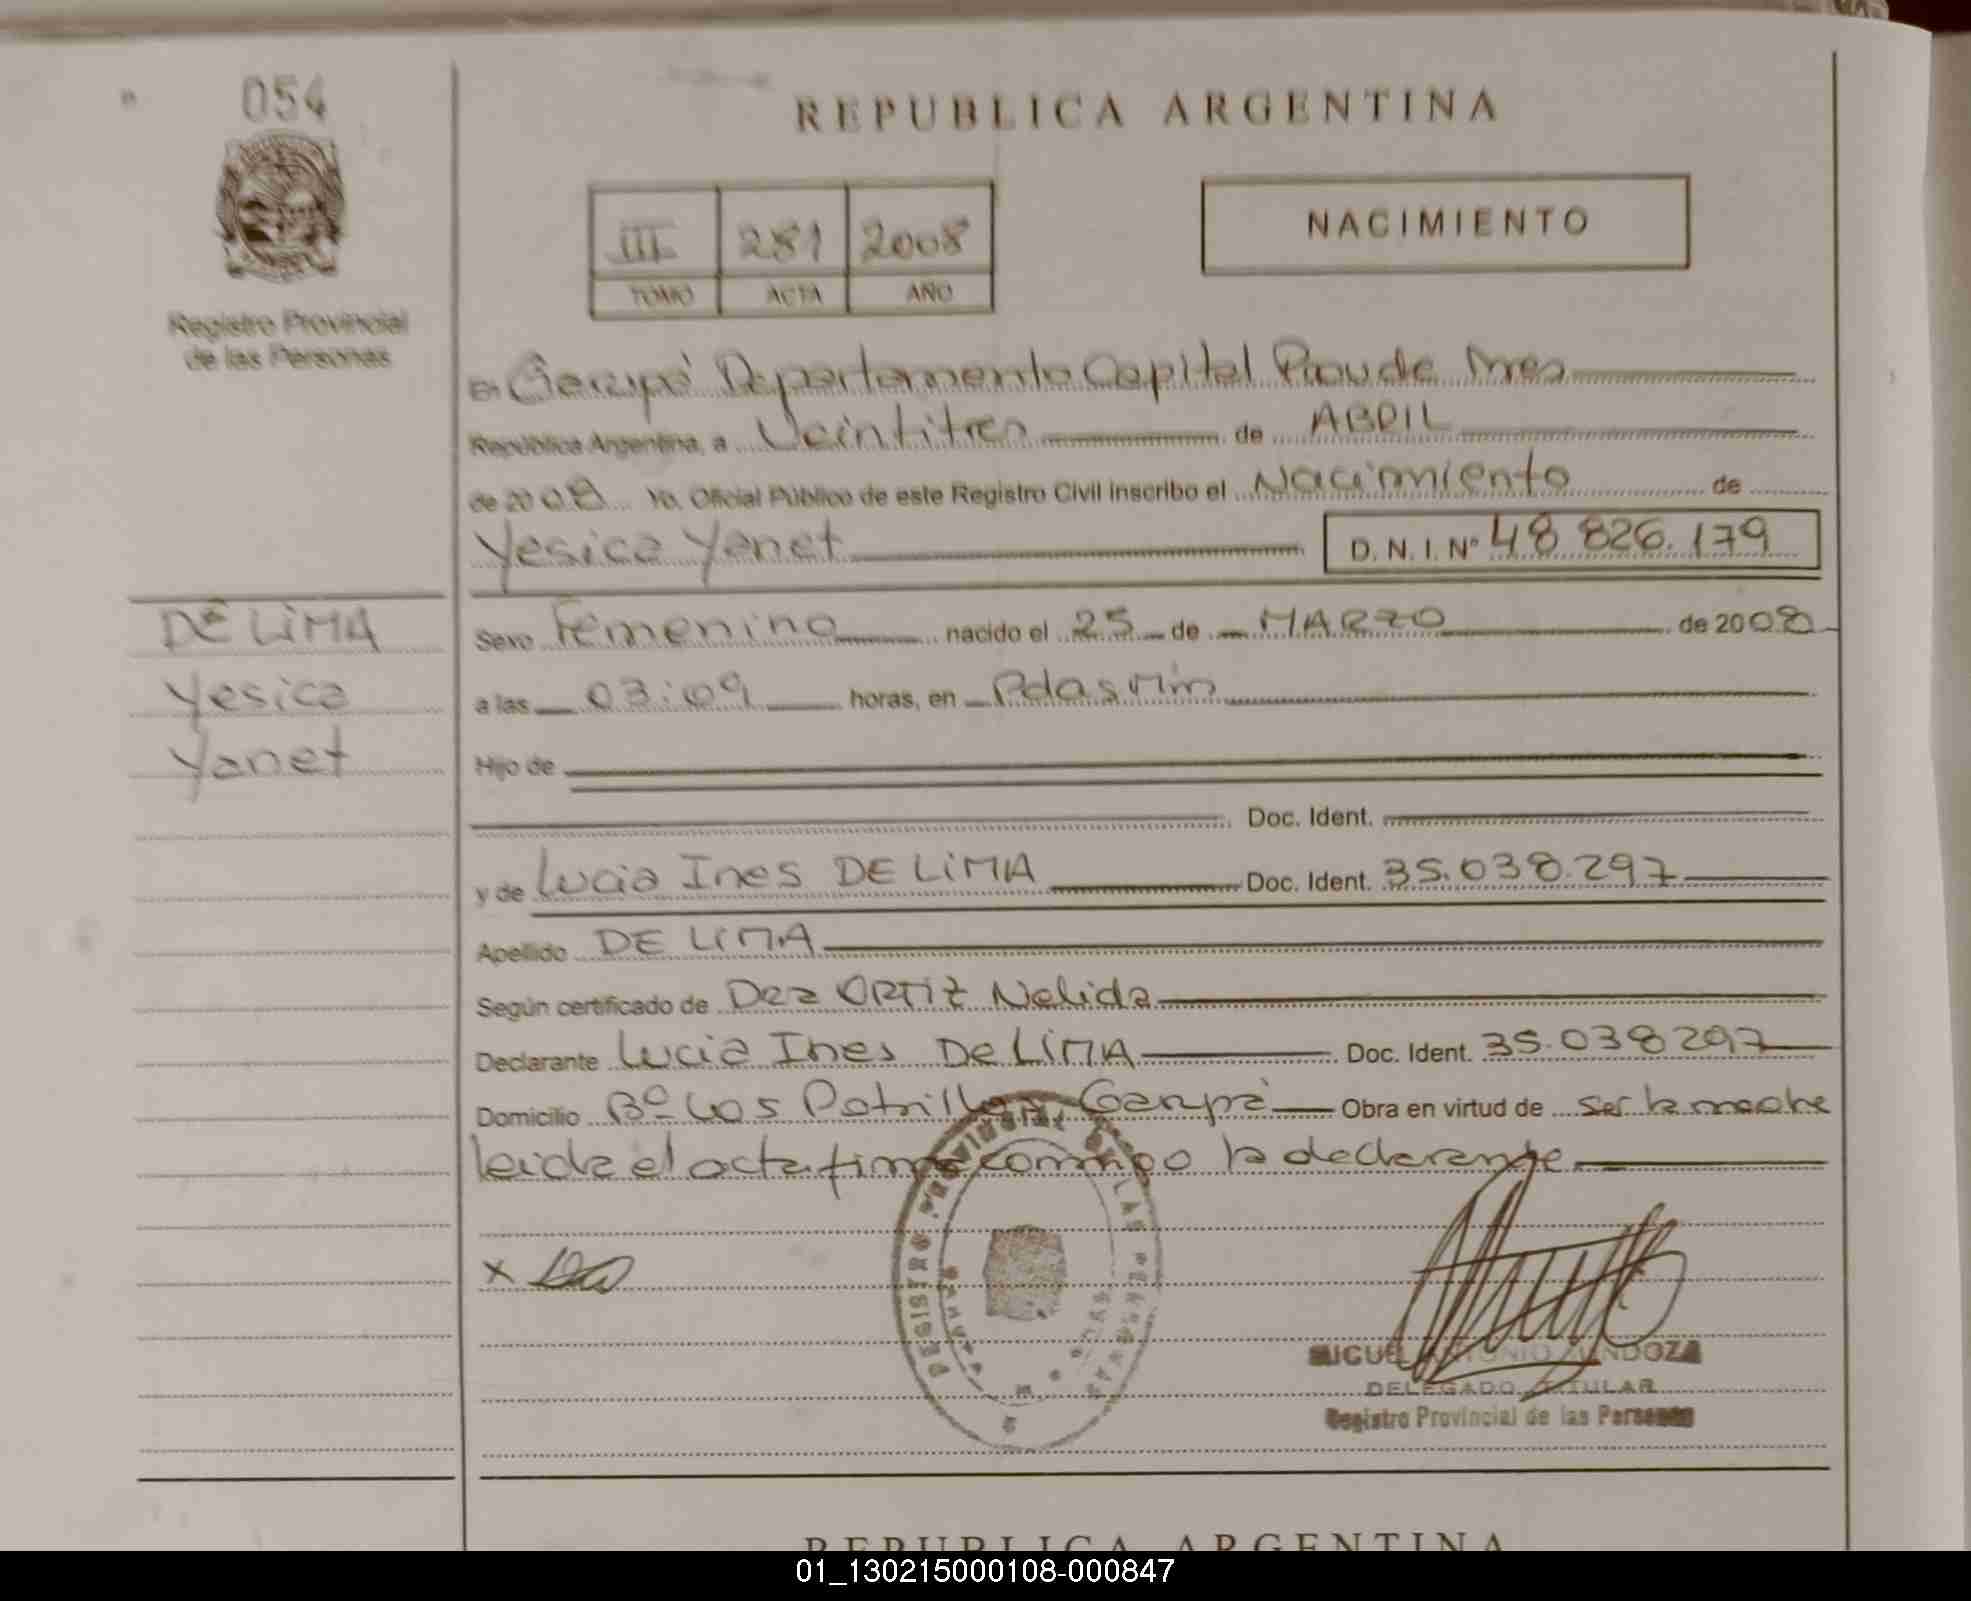 054
REPUBLICA ARGENTINA
III 281 2008
TOMO ACTA AÑO
NACIMIENTO
Registro Provincial
de las Personas
En Garupá Departamento Capital Prov de Mnes
República Argentina, a Veintitres de ABRIL
de 2008 Yo, Oficial Público de este Registro Civil inscribo el Nacimiento de
Yesica Yanet D.N.I. Nº 48 826.179
DE LiMA
Yesica
Yanet
Sexo Femenino nacido el 25 de MARZO de 2008
a las 03:09 horas, en Pdas Mnes
Hijo de
Doc. Ident.
y de Lucia Ines DE LiMA Doc. Ident. 35.038.297
Apellido DE LIMA
Según certificado de Dra ORTIZ Nelida
Declarante Lucia Ines De LiMA Doc. Ident. 35.038297
Domicilio Bº Los Potrillos, Garupá Obra en virtud de ser la madre
leida el acta firma conmigo la declarante
x
REGISTRO PROVINCIAL DE LAS PERSONAS
MIGUEL ANTONIO MENDOZA
DELEGADO TITULAR
Registro Provincial de las Personas
REPUBLICA ARGENTINA
01_130215000108-000847